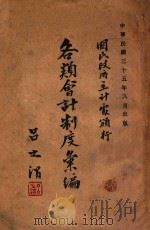 中華民國三十五年八月出版
國民政府主計處頒行
各類會計制度彙編